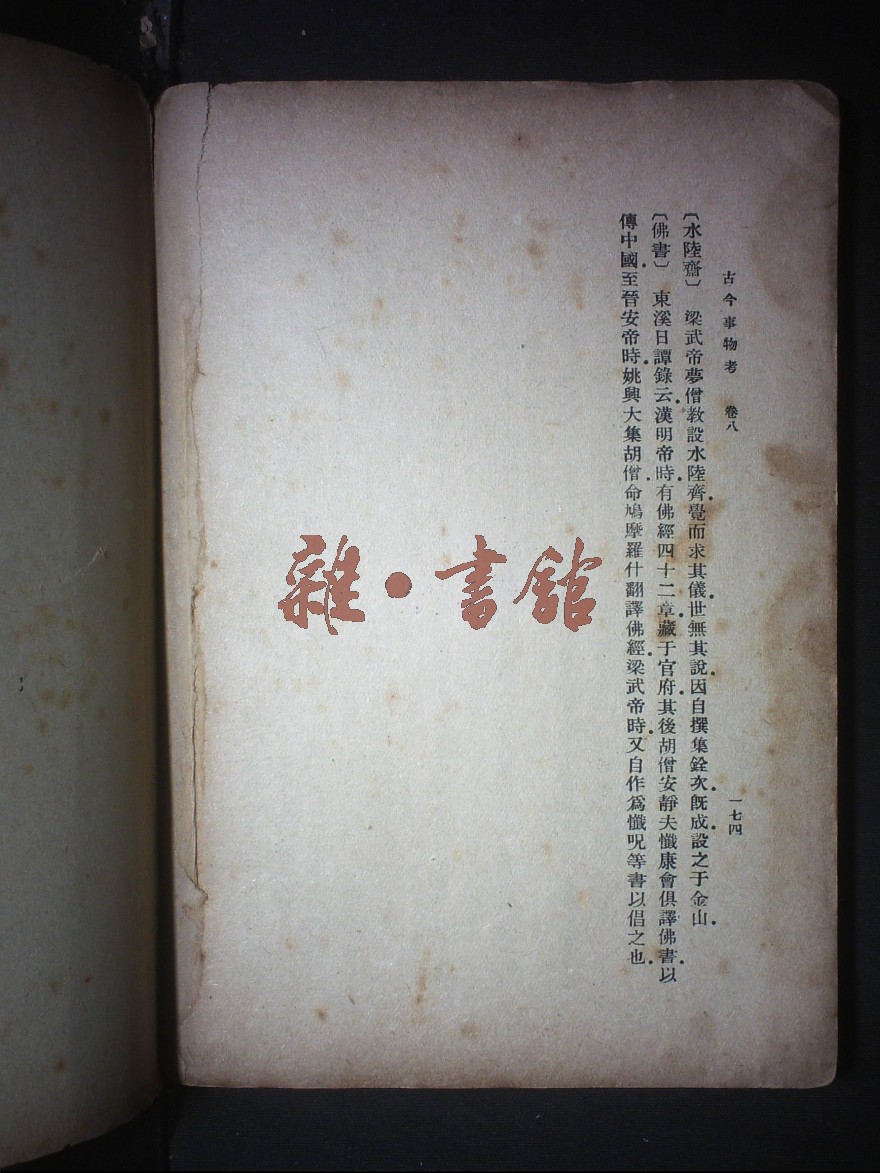 古今事物考　卷八　一七四
〔水陸齋〕　梁武帝夢僧教設水陸齊．覺而求其儀．世無其說．因自撰集銓次．既成．設之于金山．
〔佛書〕　東溪日譚錄云．漢明帝時．有佛經四十二章．藏于官府．其後胡僧安靜夫懺康會俱譯佛書．以
傳中國．至晉安帝時．姚興大集胡僧．命鳩摩羅什翻譯佛經．梁武帝時．又自作爲懺呪等書以倡之也．
雜・書館